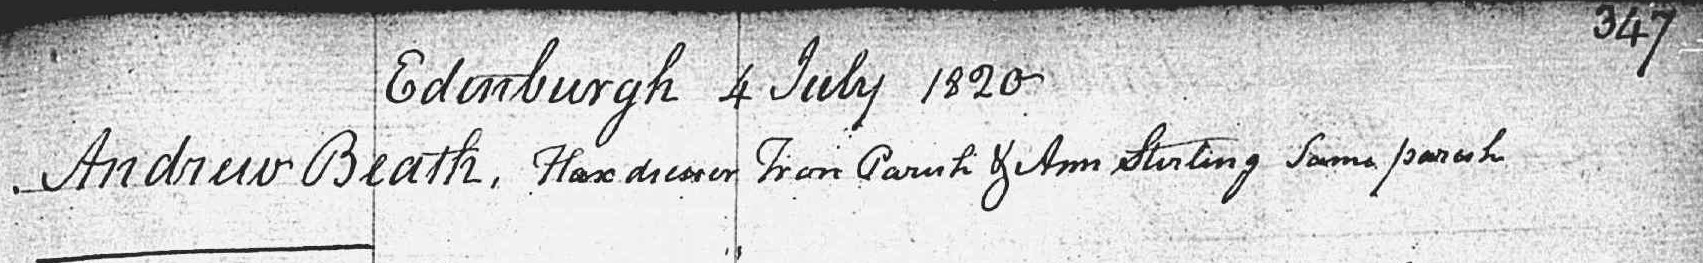 347
Edinburgh 4 July 1820
Andrew Beath, Flax dresser Tron Parish & Ann Stirling Same parish